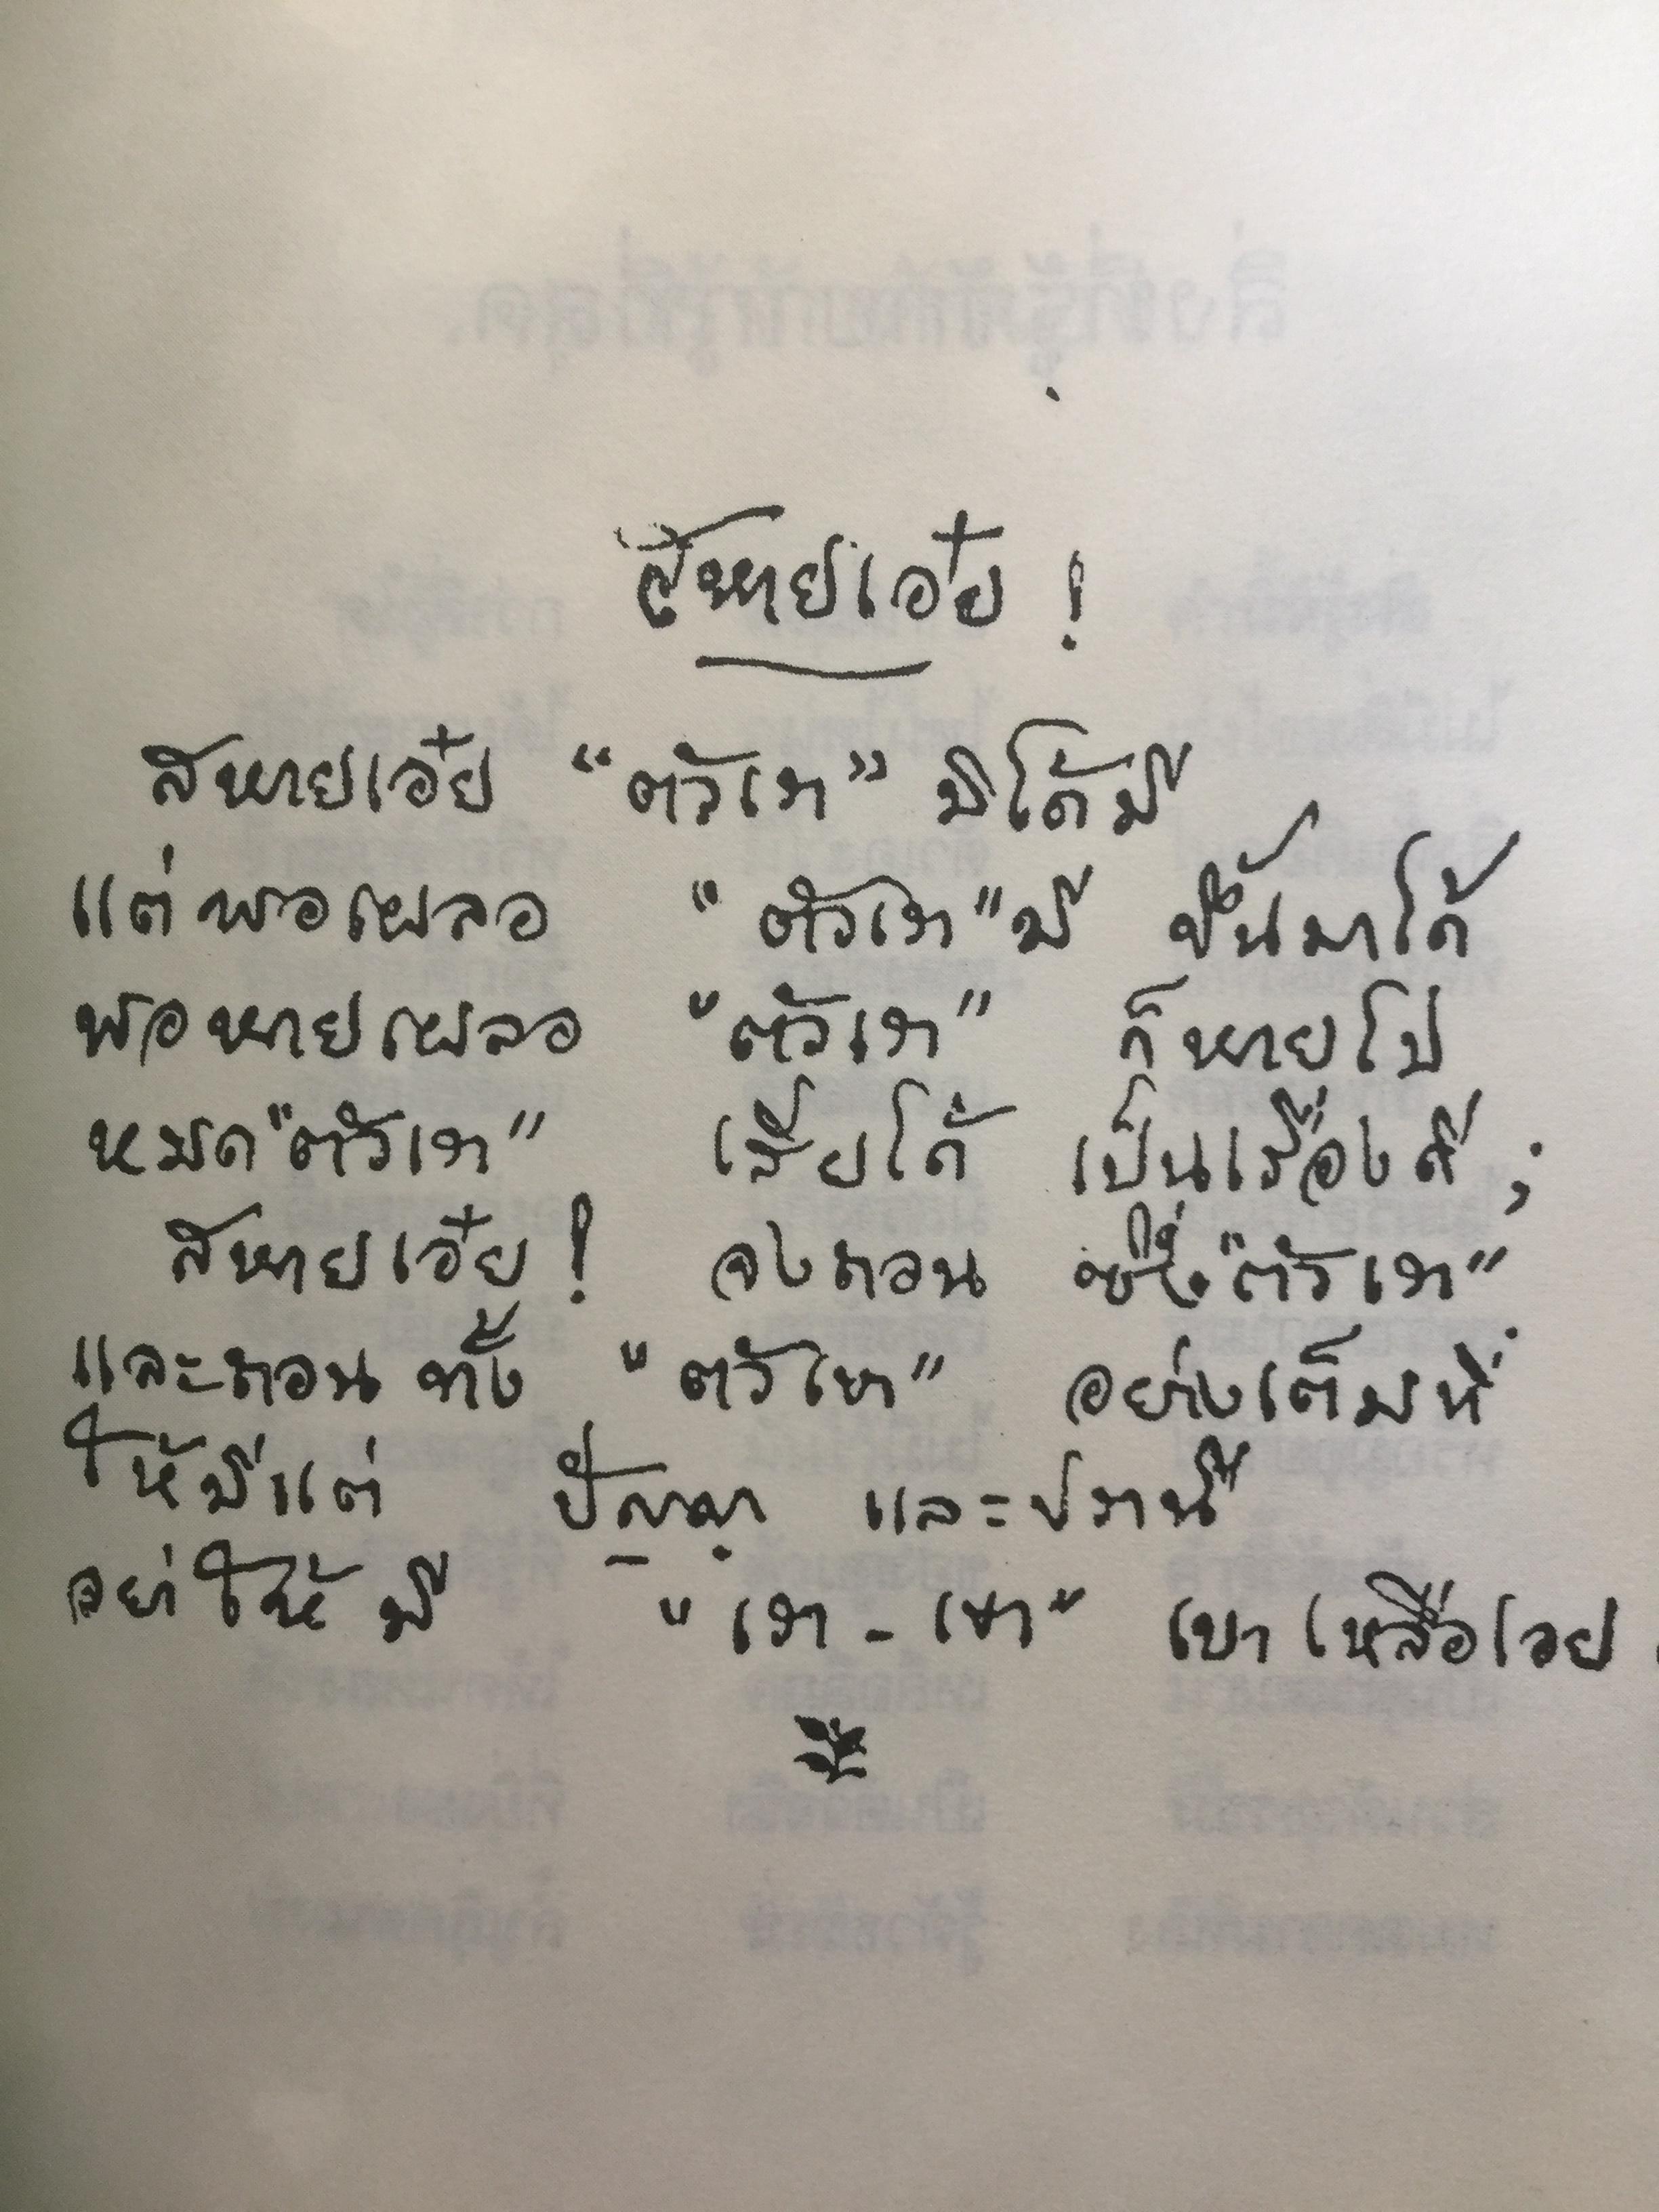 สหายเอ๋ย !
สหายเอ๋ย "ตัวเรา" มิได้มี
แต่พอเผลอ "ตัวเรา" มี ขึ้นมาได้
พอหายเผลอ "ตัวเรา" ก็หายไป
หมด "ตัวเรา" เสียได้ เป็นเรื่องดี ;
สหายเอ๋ย ! จงถอน ซึ่ง "ตัวเรา"
และถอน ทั้ง "ตัวเขา" อย่างเต็มที่
ให้มีแต่ ปัญญา และปรานี
อย่าให้ มี "เรา - เขา" เบาเหลือเอย .